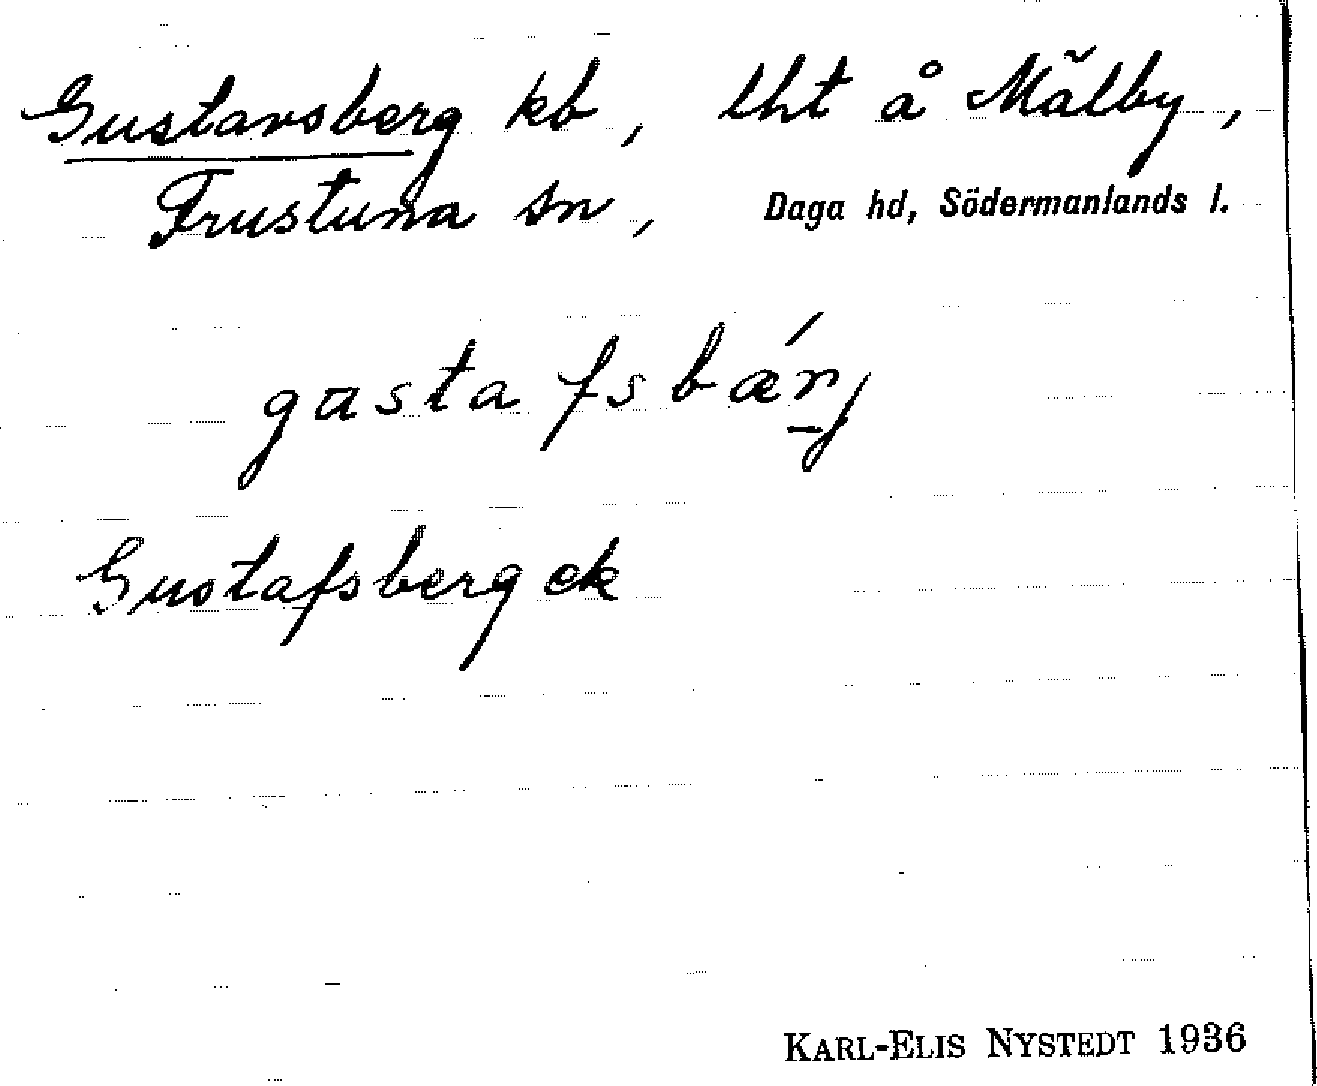 Gustavsberg kb, lht å Mälby,
Frustuna sn, Daga hd, Södermanlands l.
gastafsbærj
Gustafsberg ek
KARL-ELIS NYSTEDT 1936